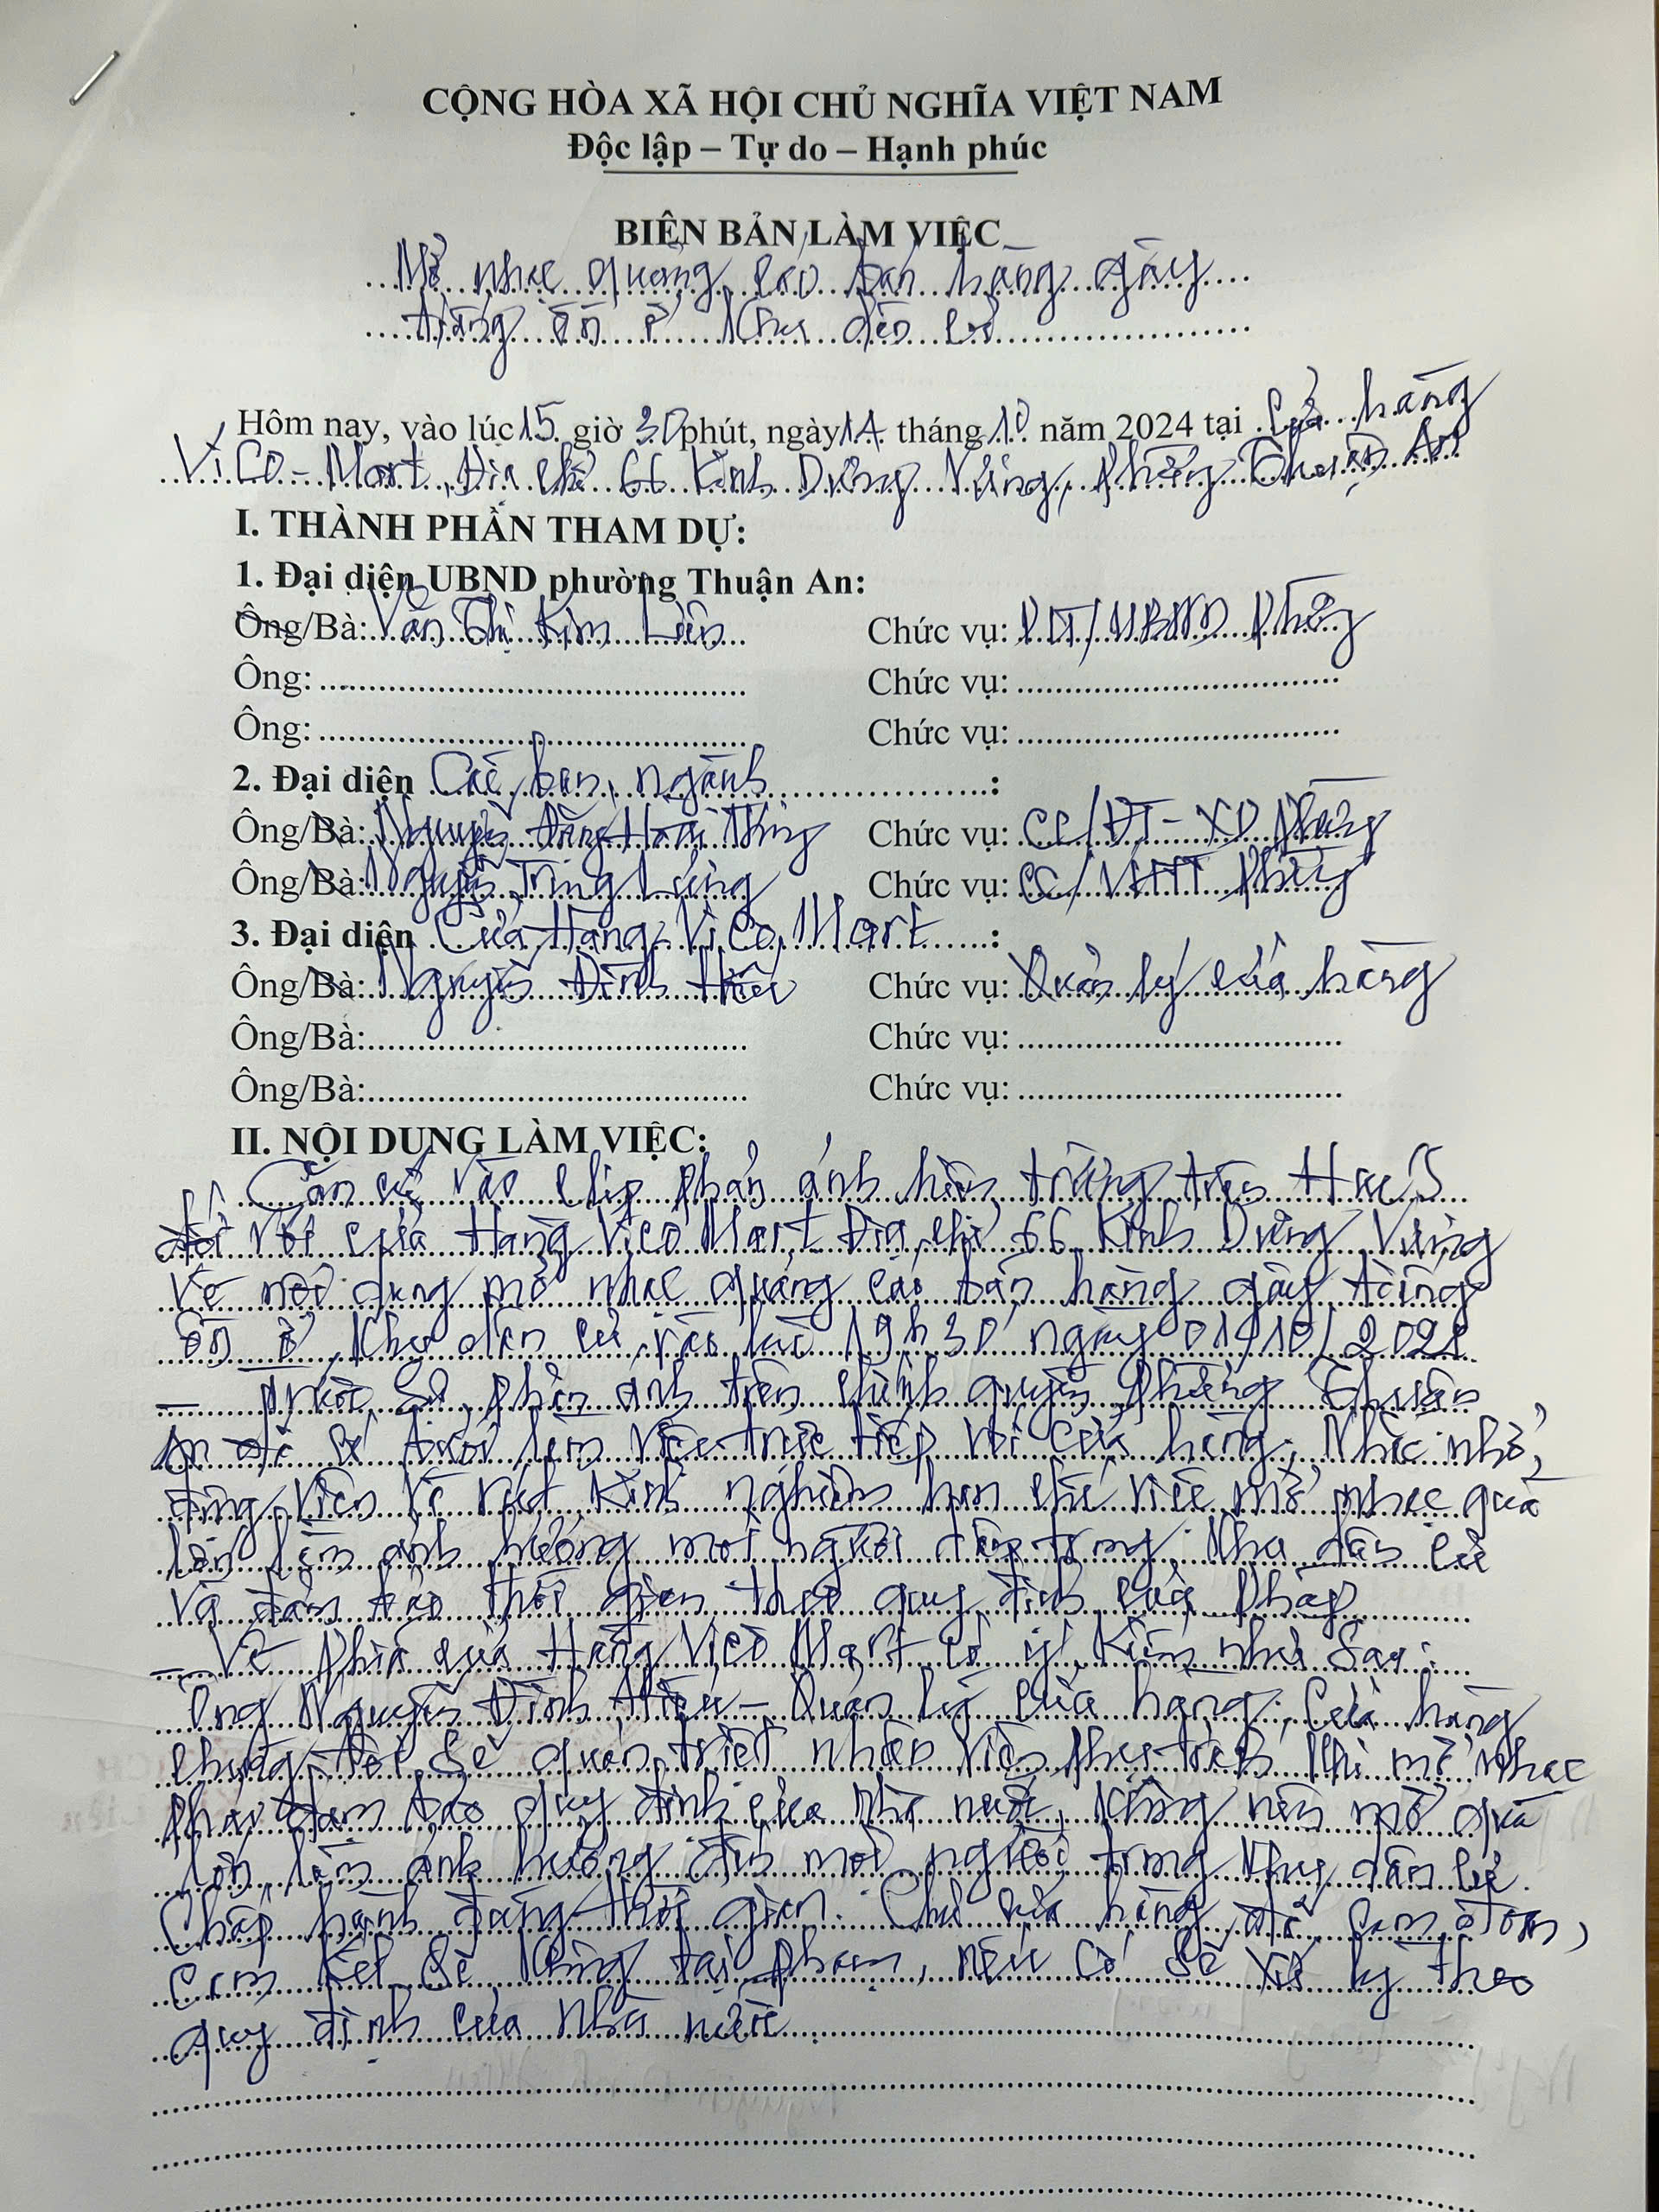 CỘNG HÒA XÃ HỘI CHỦ NGHĨA VIỆT NAM
Độc lập – Tự do – Hạnh phúc
BIÊN BẢN LÀM VIỆC
Mở nhạc quảng cáo bán hàng gây
tiếng ồn ở khu dân cư
Hôm nay, vào lúc 15 giờ 30 phút, ngày 14 tháng 10 năm 2024 tại Cửa hàng
ViCo-Mart, Địa chỉ 66 Kinh Dương Vương, phường Thuận An
I. THÀNH PHẦN THAM DỰ:
1. Đại diện UBND phường Thuận An:
Ông/Bà: Văn Thị Kim Liên Chức vụ: PCT/UBND phường
Ông: Chức vụ:
Ông: Chức vụ:
2. Đại diện Các ban, ngành :
Ông/Bà: Nguyễn Đăng Hoài Chức vụ: CC/ĐT-XD phường
Ông/Bà: Nguyễn Trung Chức vụ: CC/VHTT phường
3. Đại diện Cửa Hàng ViCo Mart :
Ông/Bà: Nguyễn Đình Hiếu Chức vụ: Quản lý cửa hàng
Ông/Bà: Chức vụ:
Ông/Bà: Chức vụ:
II. NỘI DUNG LÀM VIỆC:
Căn cứ vào clip phản ánh hiện trường trên Hue S
đối với cửa Hàng ViCo Mart Địa chỉ 66 Kinh Dương Vương
Về nội dung mở nhạc quảng cáo bán hàng gây tiếng
ồn ở khu dân cư vào lúc 19h30 ngày 01/10/2024
- trước sự phản ánh trên chính quyền phường Thuận
An đã có buổi làm việc trực tiếp với cửa hàng, Nhắc nhở,
động viên về rút kinh nghiệm hạn chế việc mở nhạc quá
lớn làm ảnh hưởng mọi người dân trong khu dân cư
Và đảm bảo thời gian theo quy định của pháp
- Về phía cửa Hàng ViCo Mart có ý kiến như sau:
Ông Nguyễn Đình Hiếu - Quản lý cửa hàng: Cửa hàng
chúng tôi sẽ quán triệt nhân viên phụ trách khi mở nhạc
phải đảm bảo quy định của nhà nước, không nên mở quá
lớn, làm ảnh hưởng đến mọi người trong khu dân cư.
Chấp hành đúng thời gian. Chủ cửa hàng đã cam đoan,
cam kết sẽ không tái phạm, nếu có sẽ xử lý theo
quy định của nhà nước.